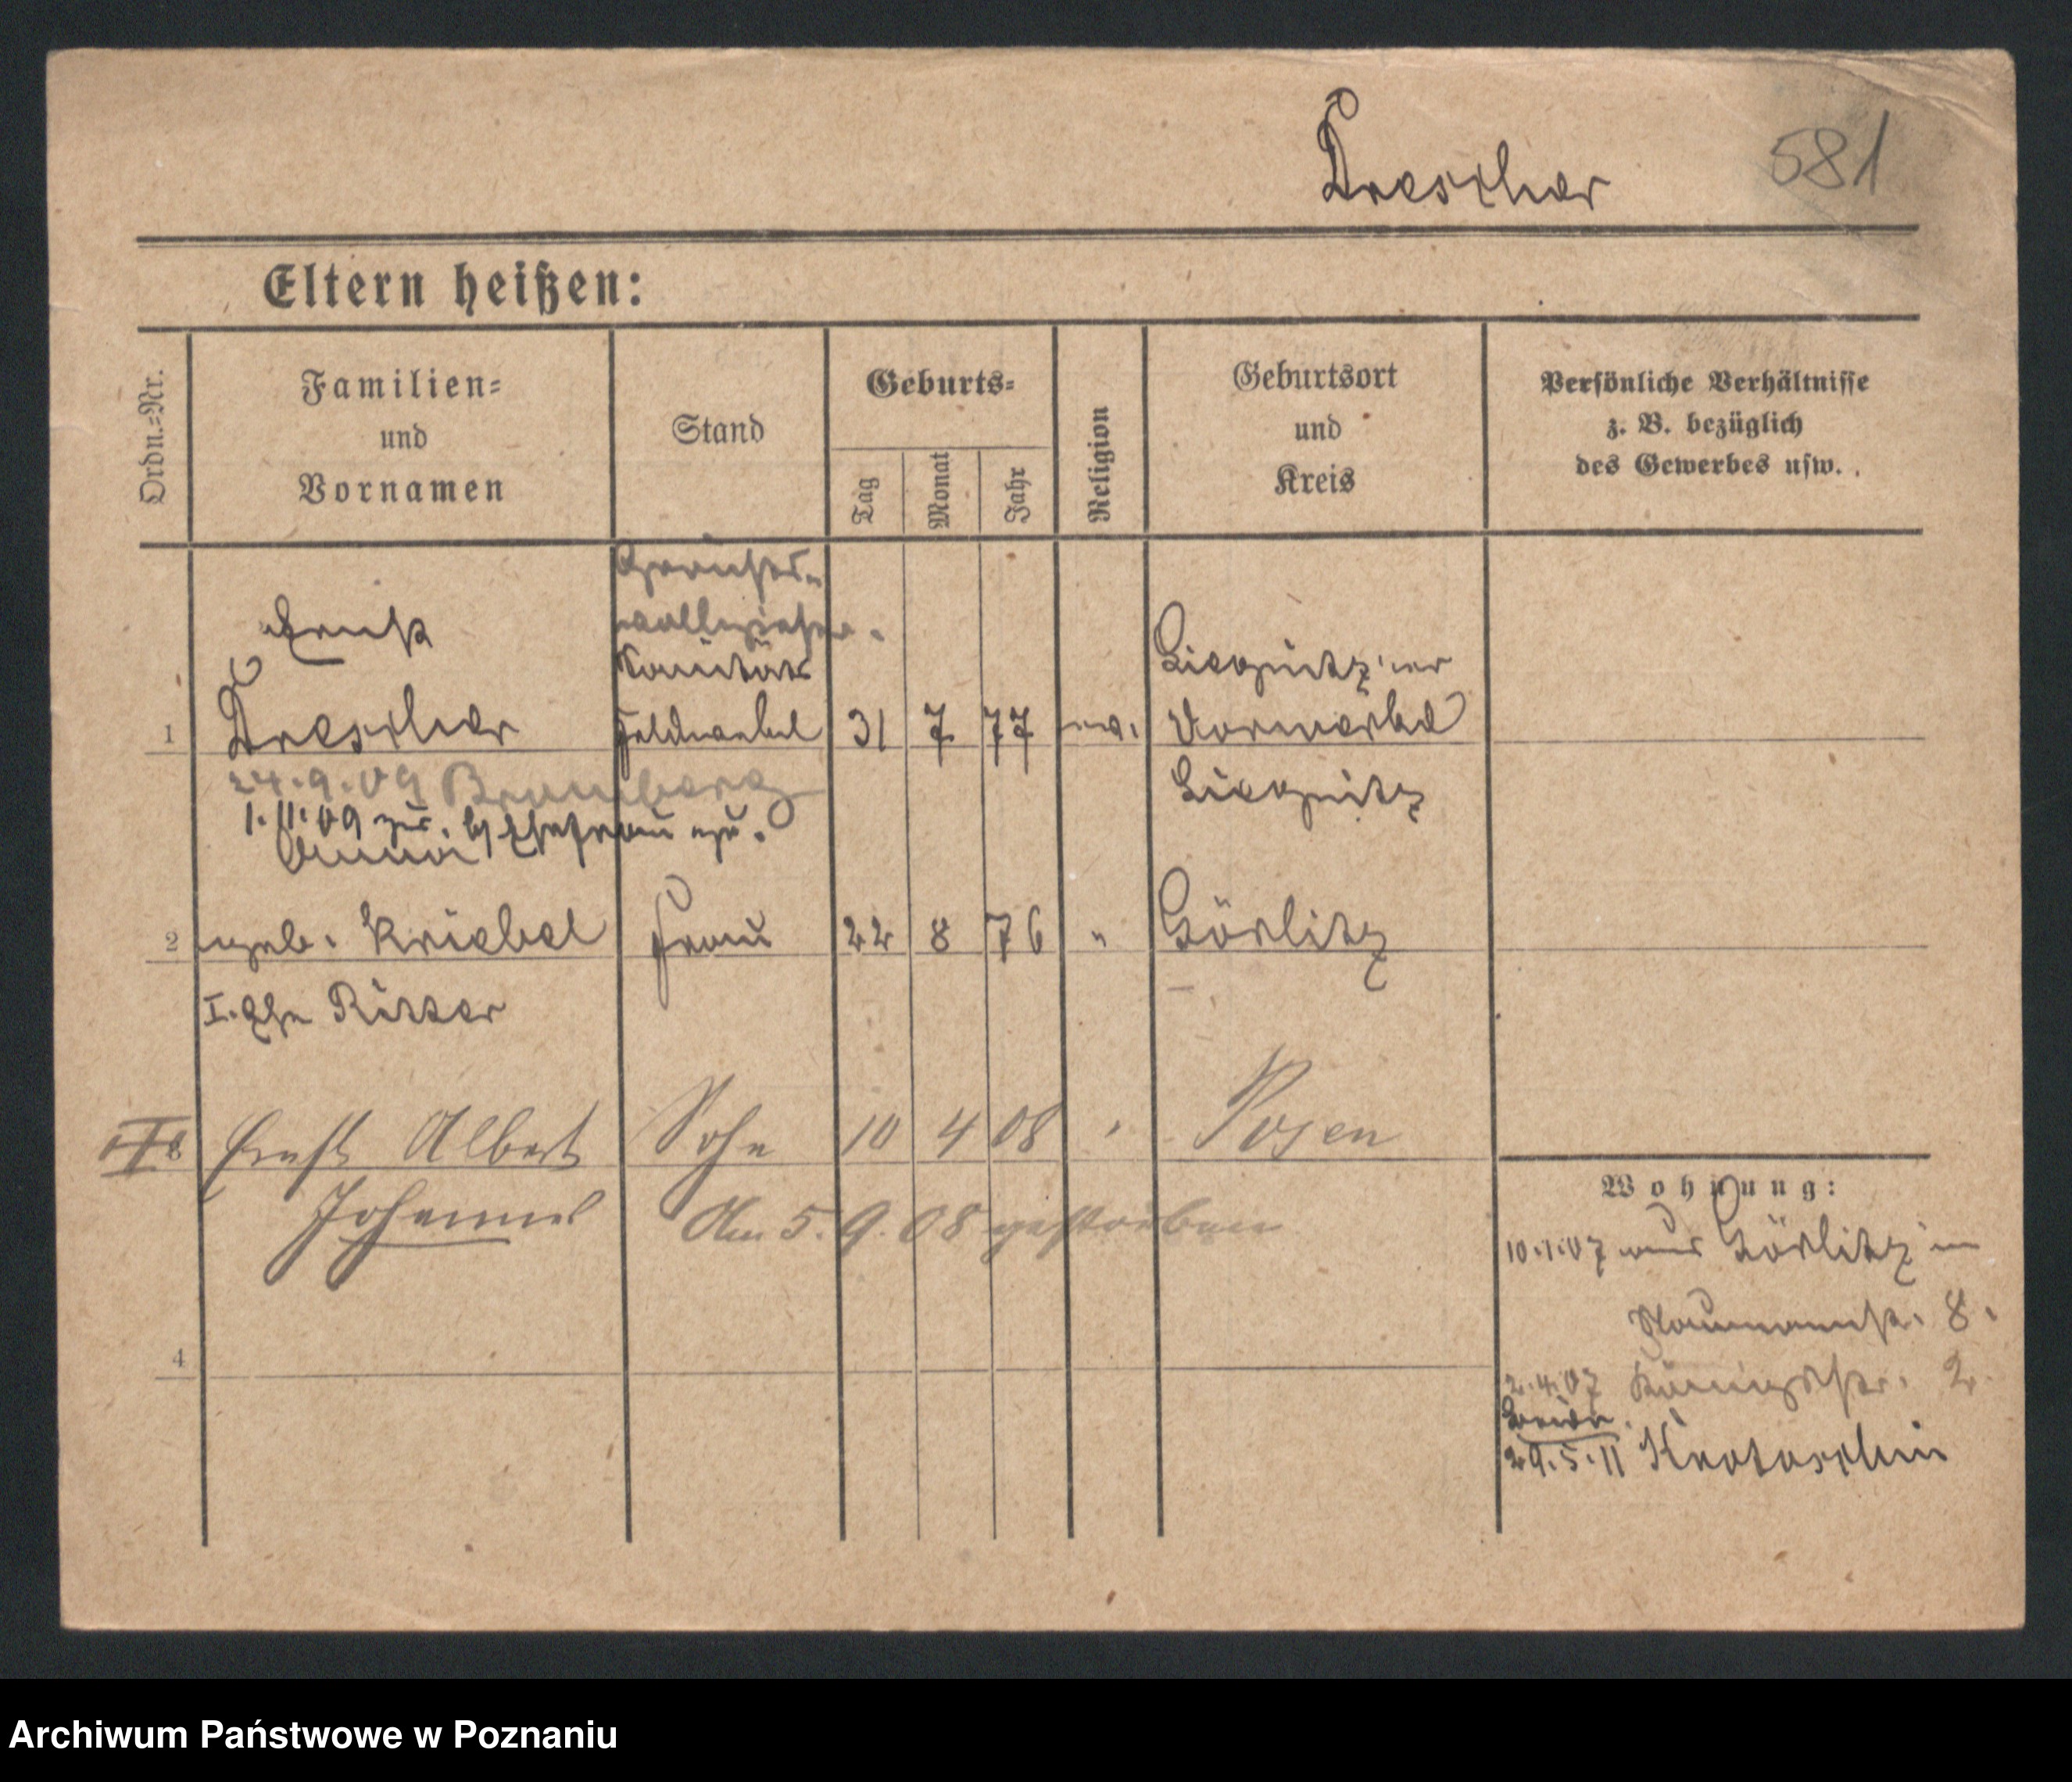 Drescher 581
Eltern heißen:
Ordn.-Nr.
Familien-
und
Vornamen
Stand
Geburts-
Tag
Monat
Jahr
Religion
Geburtsort
und
Kreis
Persönliche Verhältnisse
z. B. bezüglich
des Gewerbes usw.
Gerichts-
vollzieher
Ernst Sanitäts
1 Drescher Feldwebel 31 7 77 ev. Liegnitz'er
Vorwerke
Liegnitz
24.9.09 Bromberg
1.11.09 zur. Ehefrau
Anna
2 geb. Kriebel Frau 22 8 76 " Görlitz
I. Ehe Ritter
Ernst Albert Sohn 10 4 08 " Posen
Johannes Am 5.9.08 gestorben
4
Wohnung:
10.1.07 aus Görlitz in
Naumannstr. 8.
2.4.07 Königstr. 2.
29.5.11 Krotoschin
Archiwum Państwowe w Poznaniu